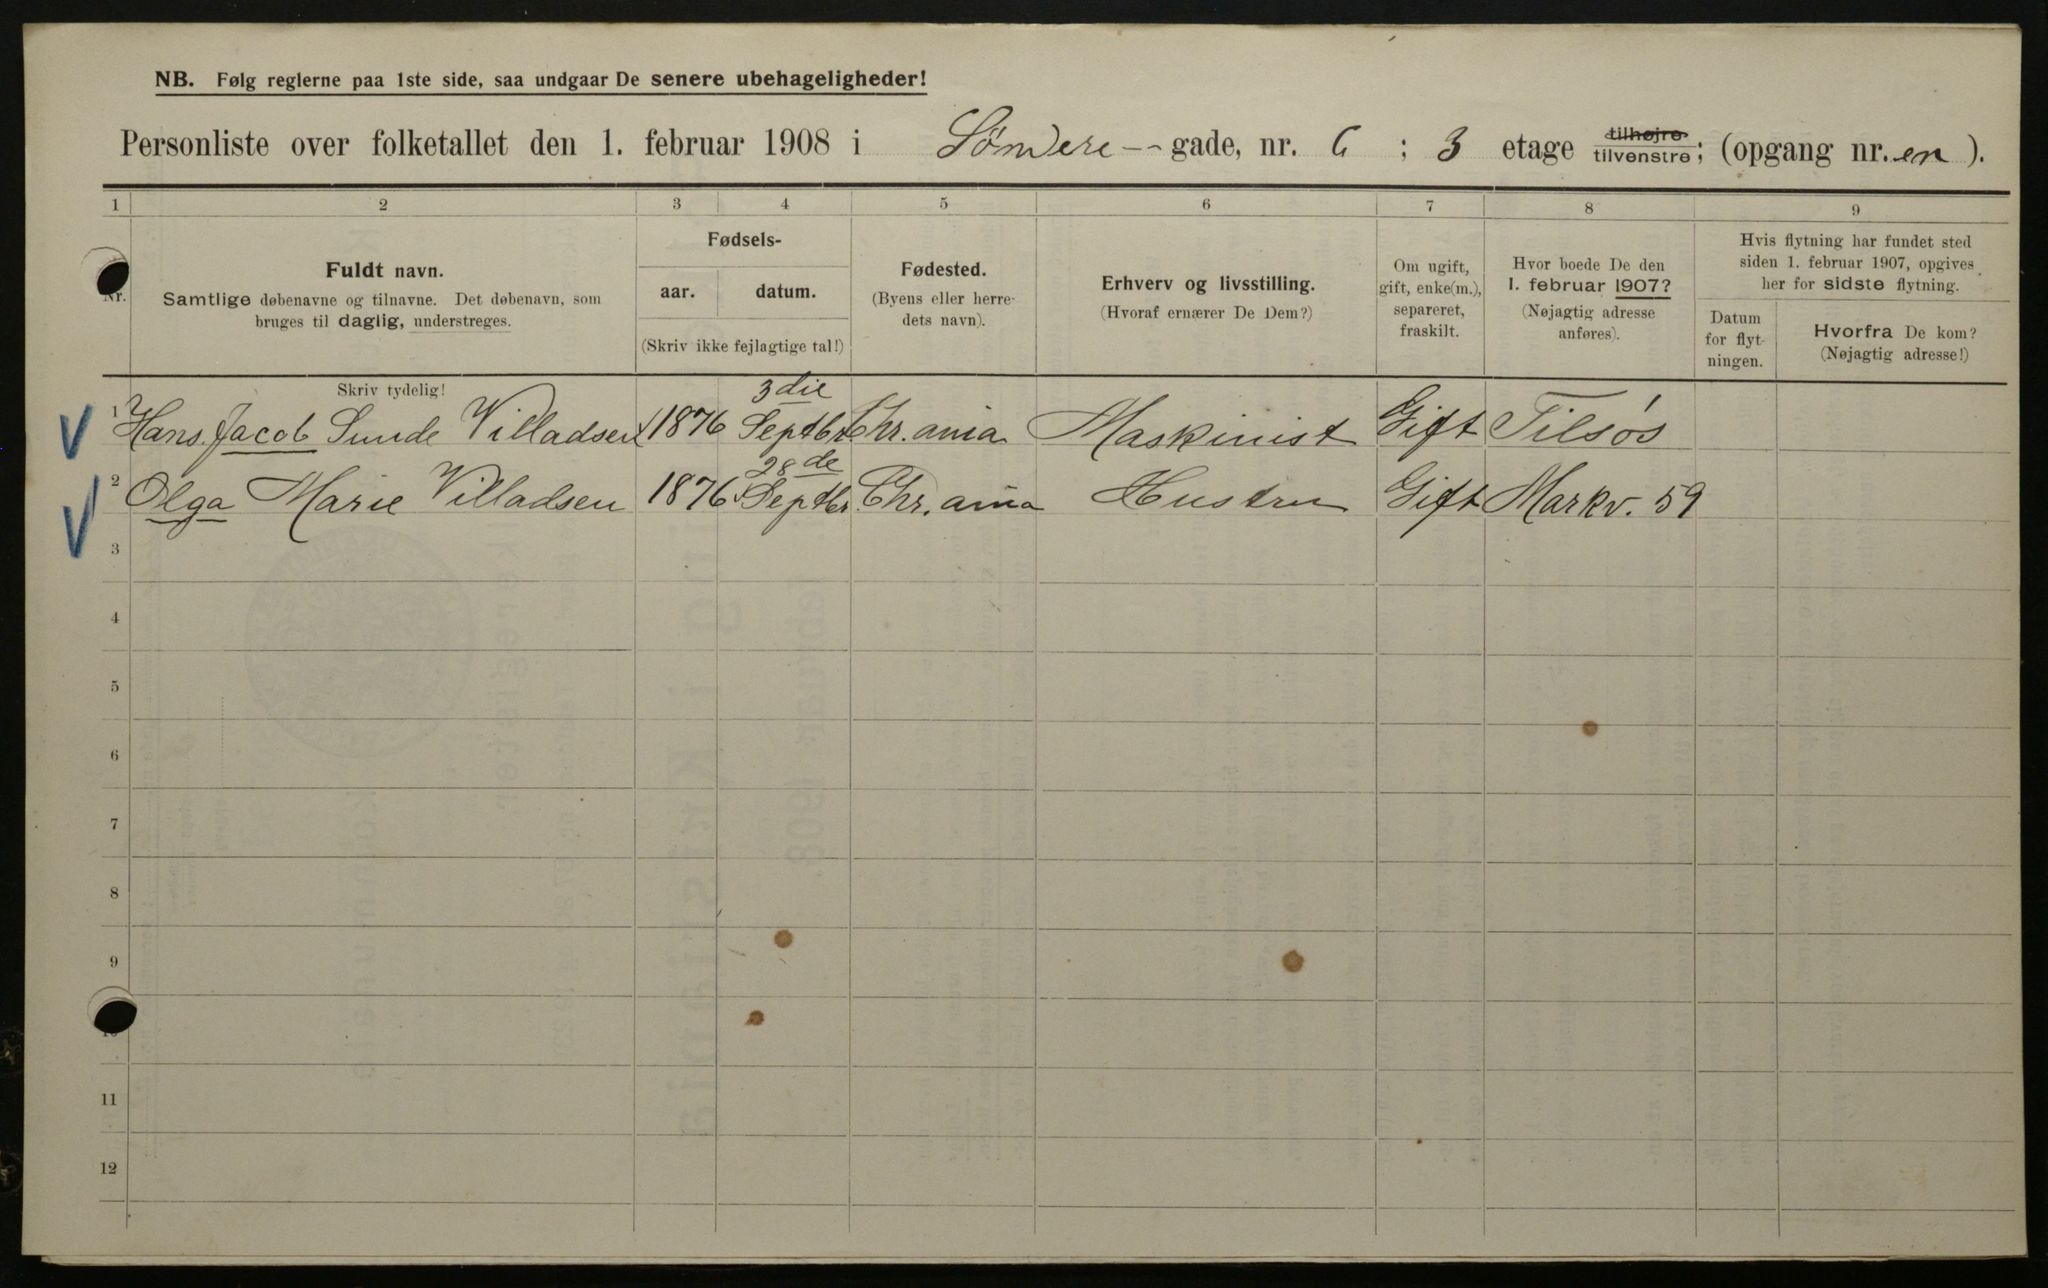 NB. Følg reglerne paa 1ste side, saa undgaar De senere ubehageligheder!
Personliste over folketallet den 1. februar 1908 i Søndere -- gade, nr. 6 ; 3 etage tilhøjre tilvenstre; (opgang nr. en ).
1 2 3 4 5 6 7 8 9
Nr.
Fuldt navn.
Samtlige døbenavne og tilnavne. Det døbenavn, som
bruges til daglig, understreges.
Skriv tydelig!
Fødsels-
aar. datum.
(Skriv ikke fejlagtige tal!)
Fødested.
(Byens eller herre-
dets navn).
Erhverv og livsstilling.
(Hvoraf ernærer De Dem?)
Om ugift,
gift, enke(m.),
separeret,
fraskilt.
Hvor boede De den
1. februar 1907?
(Nøjagtig adresse
anføres).
Hvis flytning har fundet sted
siden 1. februar 1907, opgives
her for sidste flytning.
Datum
for flyt-
ningen.
Hvorfra De kom?
(Nøjagtig adresse!)
3die
1 Hans Jacob Sunde Villadsen 1876 Septbr Chr.ania Maskinist Gift Tilsøs
28de
2 Olga Marie Villadsen 1876 Septbr. Chr.ania Hustru Gift Markv. 59
3
4
5
6
7
8
9
10
11
12